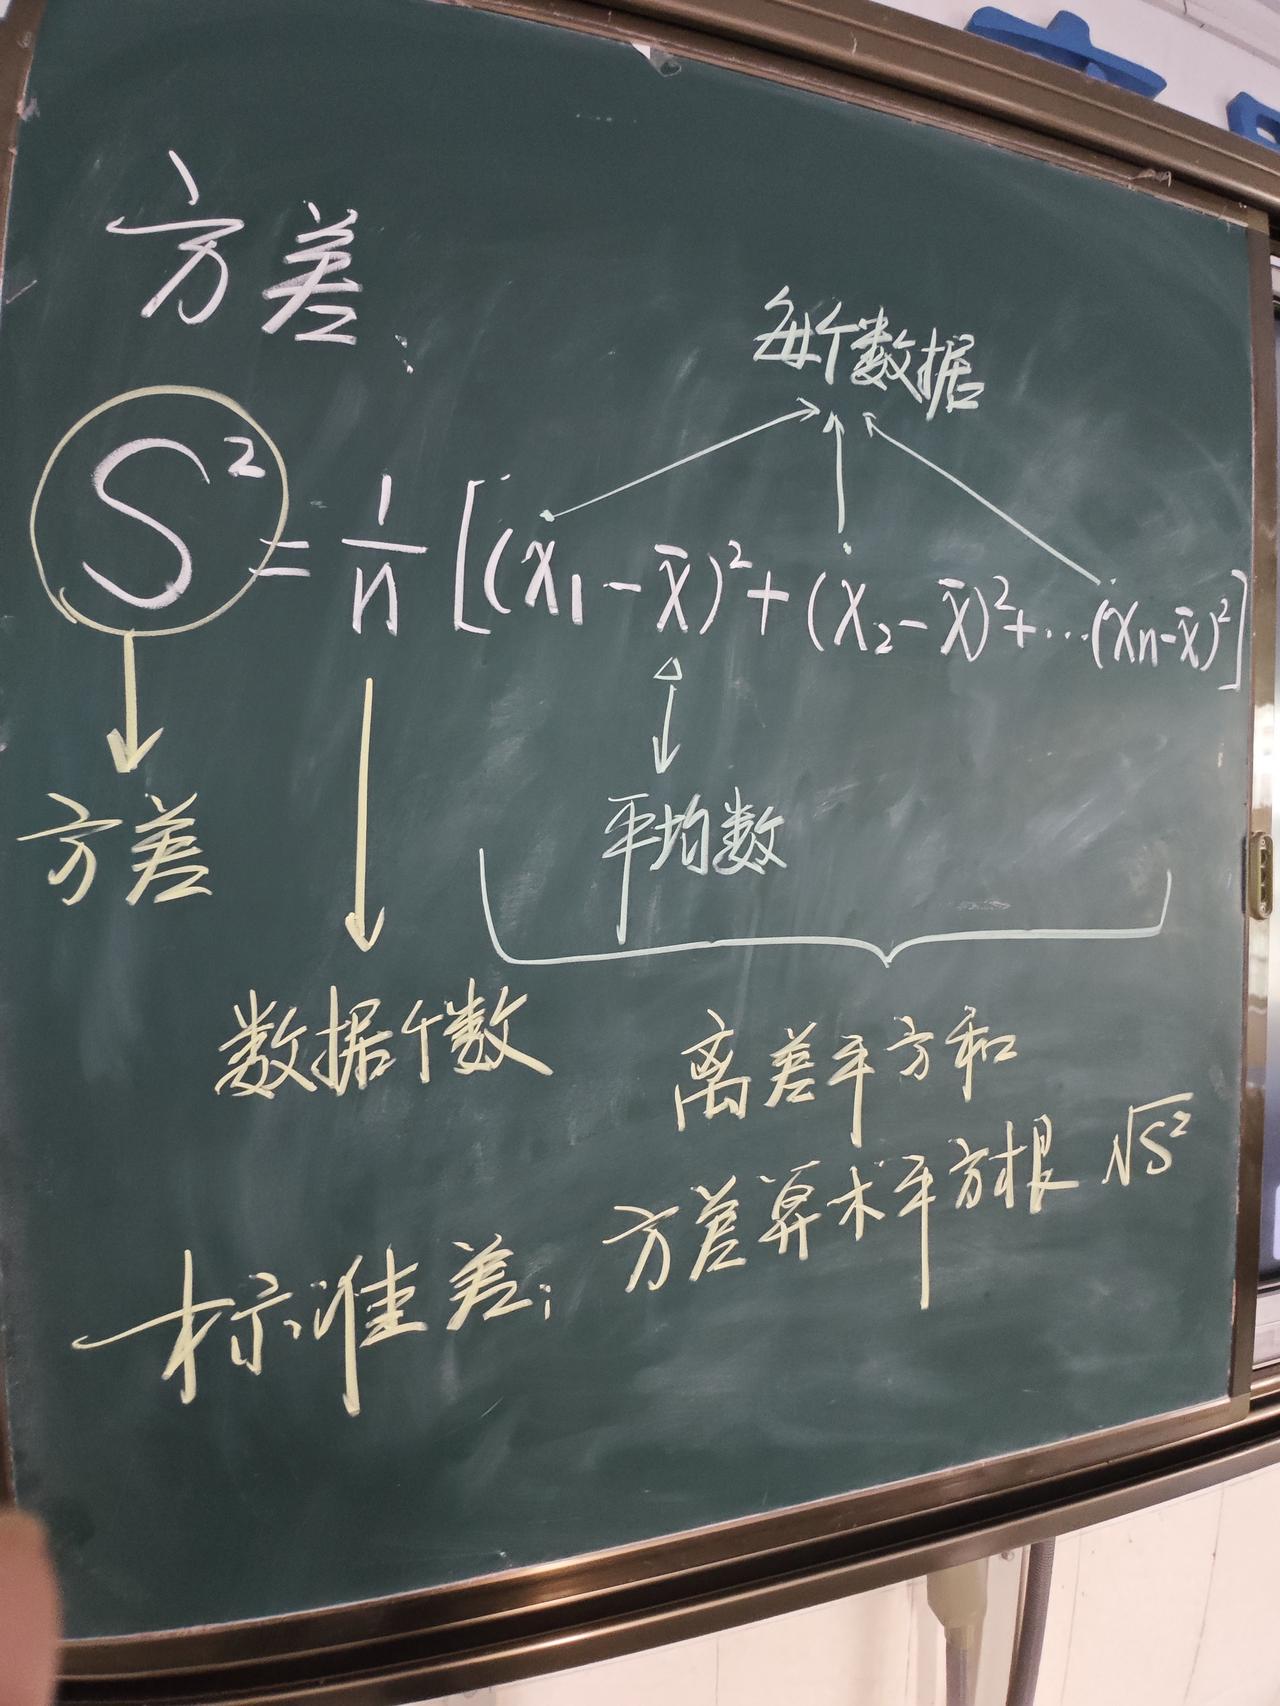 方差:
每个数据
S² = 1/n [(x₁-x̄)²+(x₂-x̄)²+…(xₙ-x̄)²]
方差
平均数
数据个数
离差平方和
标准差: 方差算术平方根 √S²